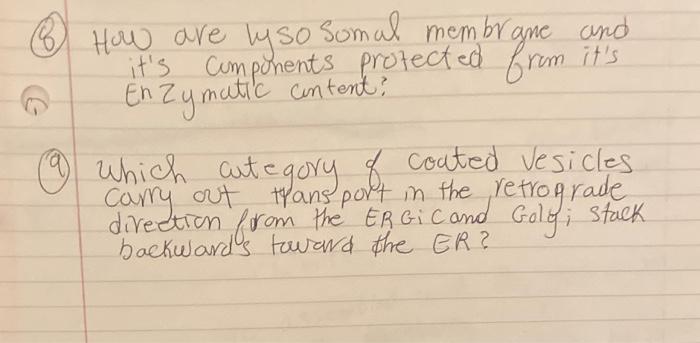 (8) How are lysosomal membrane and
it's components protected from it's
Enzymatic content?
(9) Which category of coated vesicles
carry out transport in the retrograde
direction from the ERGIC and Golgi stack
backwards toward the ER?